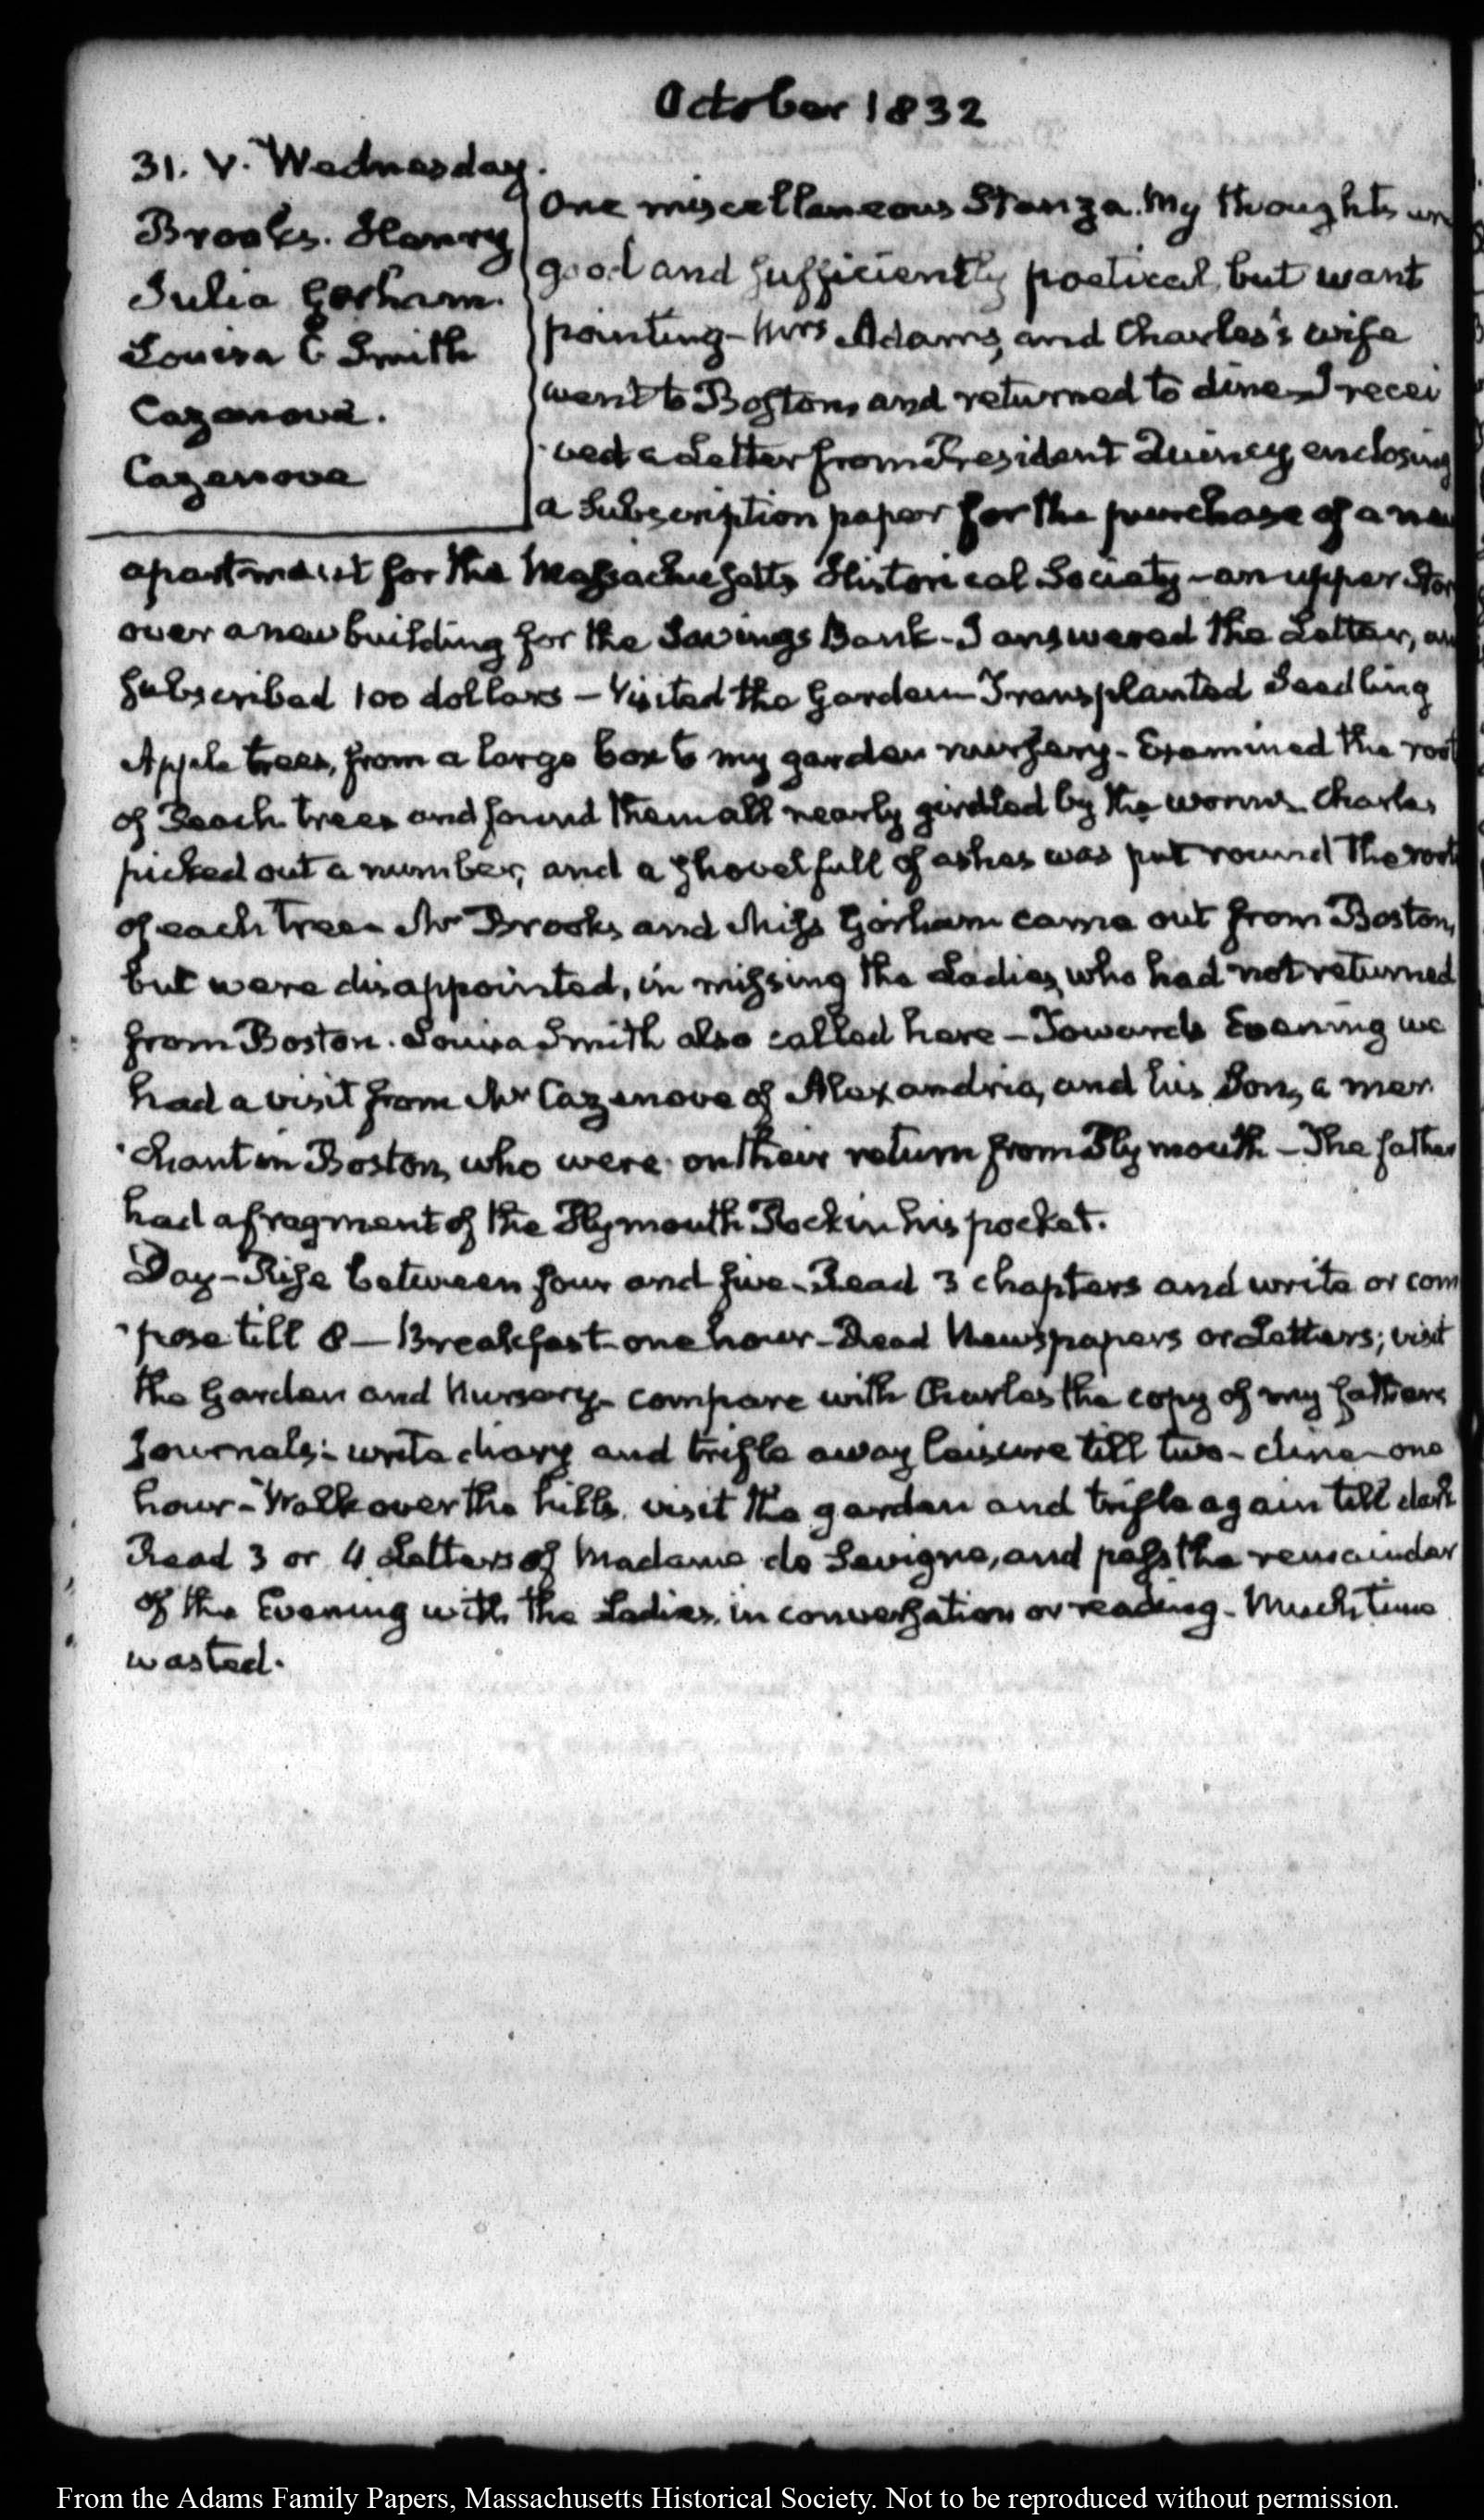 October 1832
31. V. Wednesday.
Brooks. Henry
Julia Gorham.
Louisa C Smith
Cazenove.
Cazenove
One miscellaneous Stanza. My thoughts
good and sufficiently poetical, but want
pointing - Mrs Adams, and Charles's wife
went to Boston, and returned to dine - I recei
ved a Letter from President Quincy, enclosing
a Subscription paper for the purchase of a new
apartment for the Massachusetts Historical Society - an upper Stor
over a new building for the Savings Bank - I answered the Letter, an
subscribed 100 dollars - Visited the Garden - Transplanted Seedling
Apple trees, from a large box to my garden nursery - Examined the root
of Peach trees and found them all nearly girdled by the worms - Charles
picked out a number, and a shovel full of ashes was put round the root
of each tree - Mr Brooks and Miss Gorham came out from Boston,
but were disappointed, in missing the Ladies, who had not returned
from Boston. Louisa Smith also called here - Towards Evening we
had a visit from Mr Cazenove of Alexandria, and his Son, a mer
chant in Boston, who were on their return from Plymouth - The father
had a fragment of the Plymouth Rock in his pocket.
Day - Rise between four and five - Read 3 chapters and write or com
pose till 8 - Breakfast one hour - Read Newspapers or Letters; visit
the Garden and Nursery - compare with Charles the copy of my father's
Journals: write diary and trifle away leisure till two - dine - one
hour - Walk over the hills, visit the garden and trifle again till dark
Read 3 or 4 Letters of Madame de Sevigne, and pass the remainder
of the Evening with the Ladies, in conversation or reading - Much time
wasted.
From the Adams Family Papers, Massachusetts Historical Society. Not to be reproduced without permission.